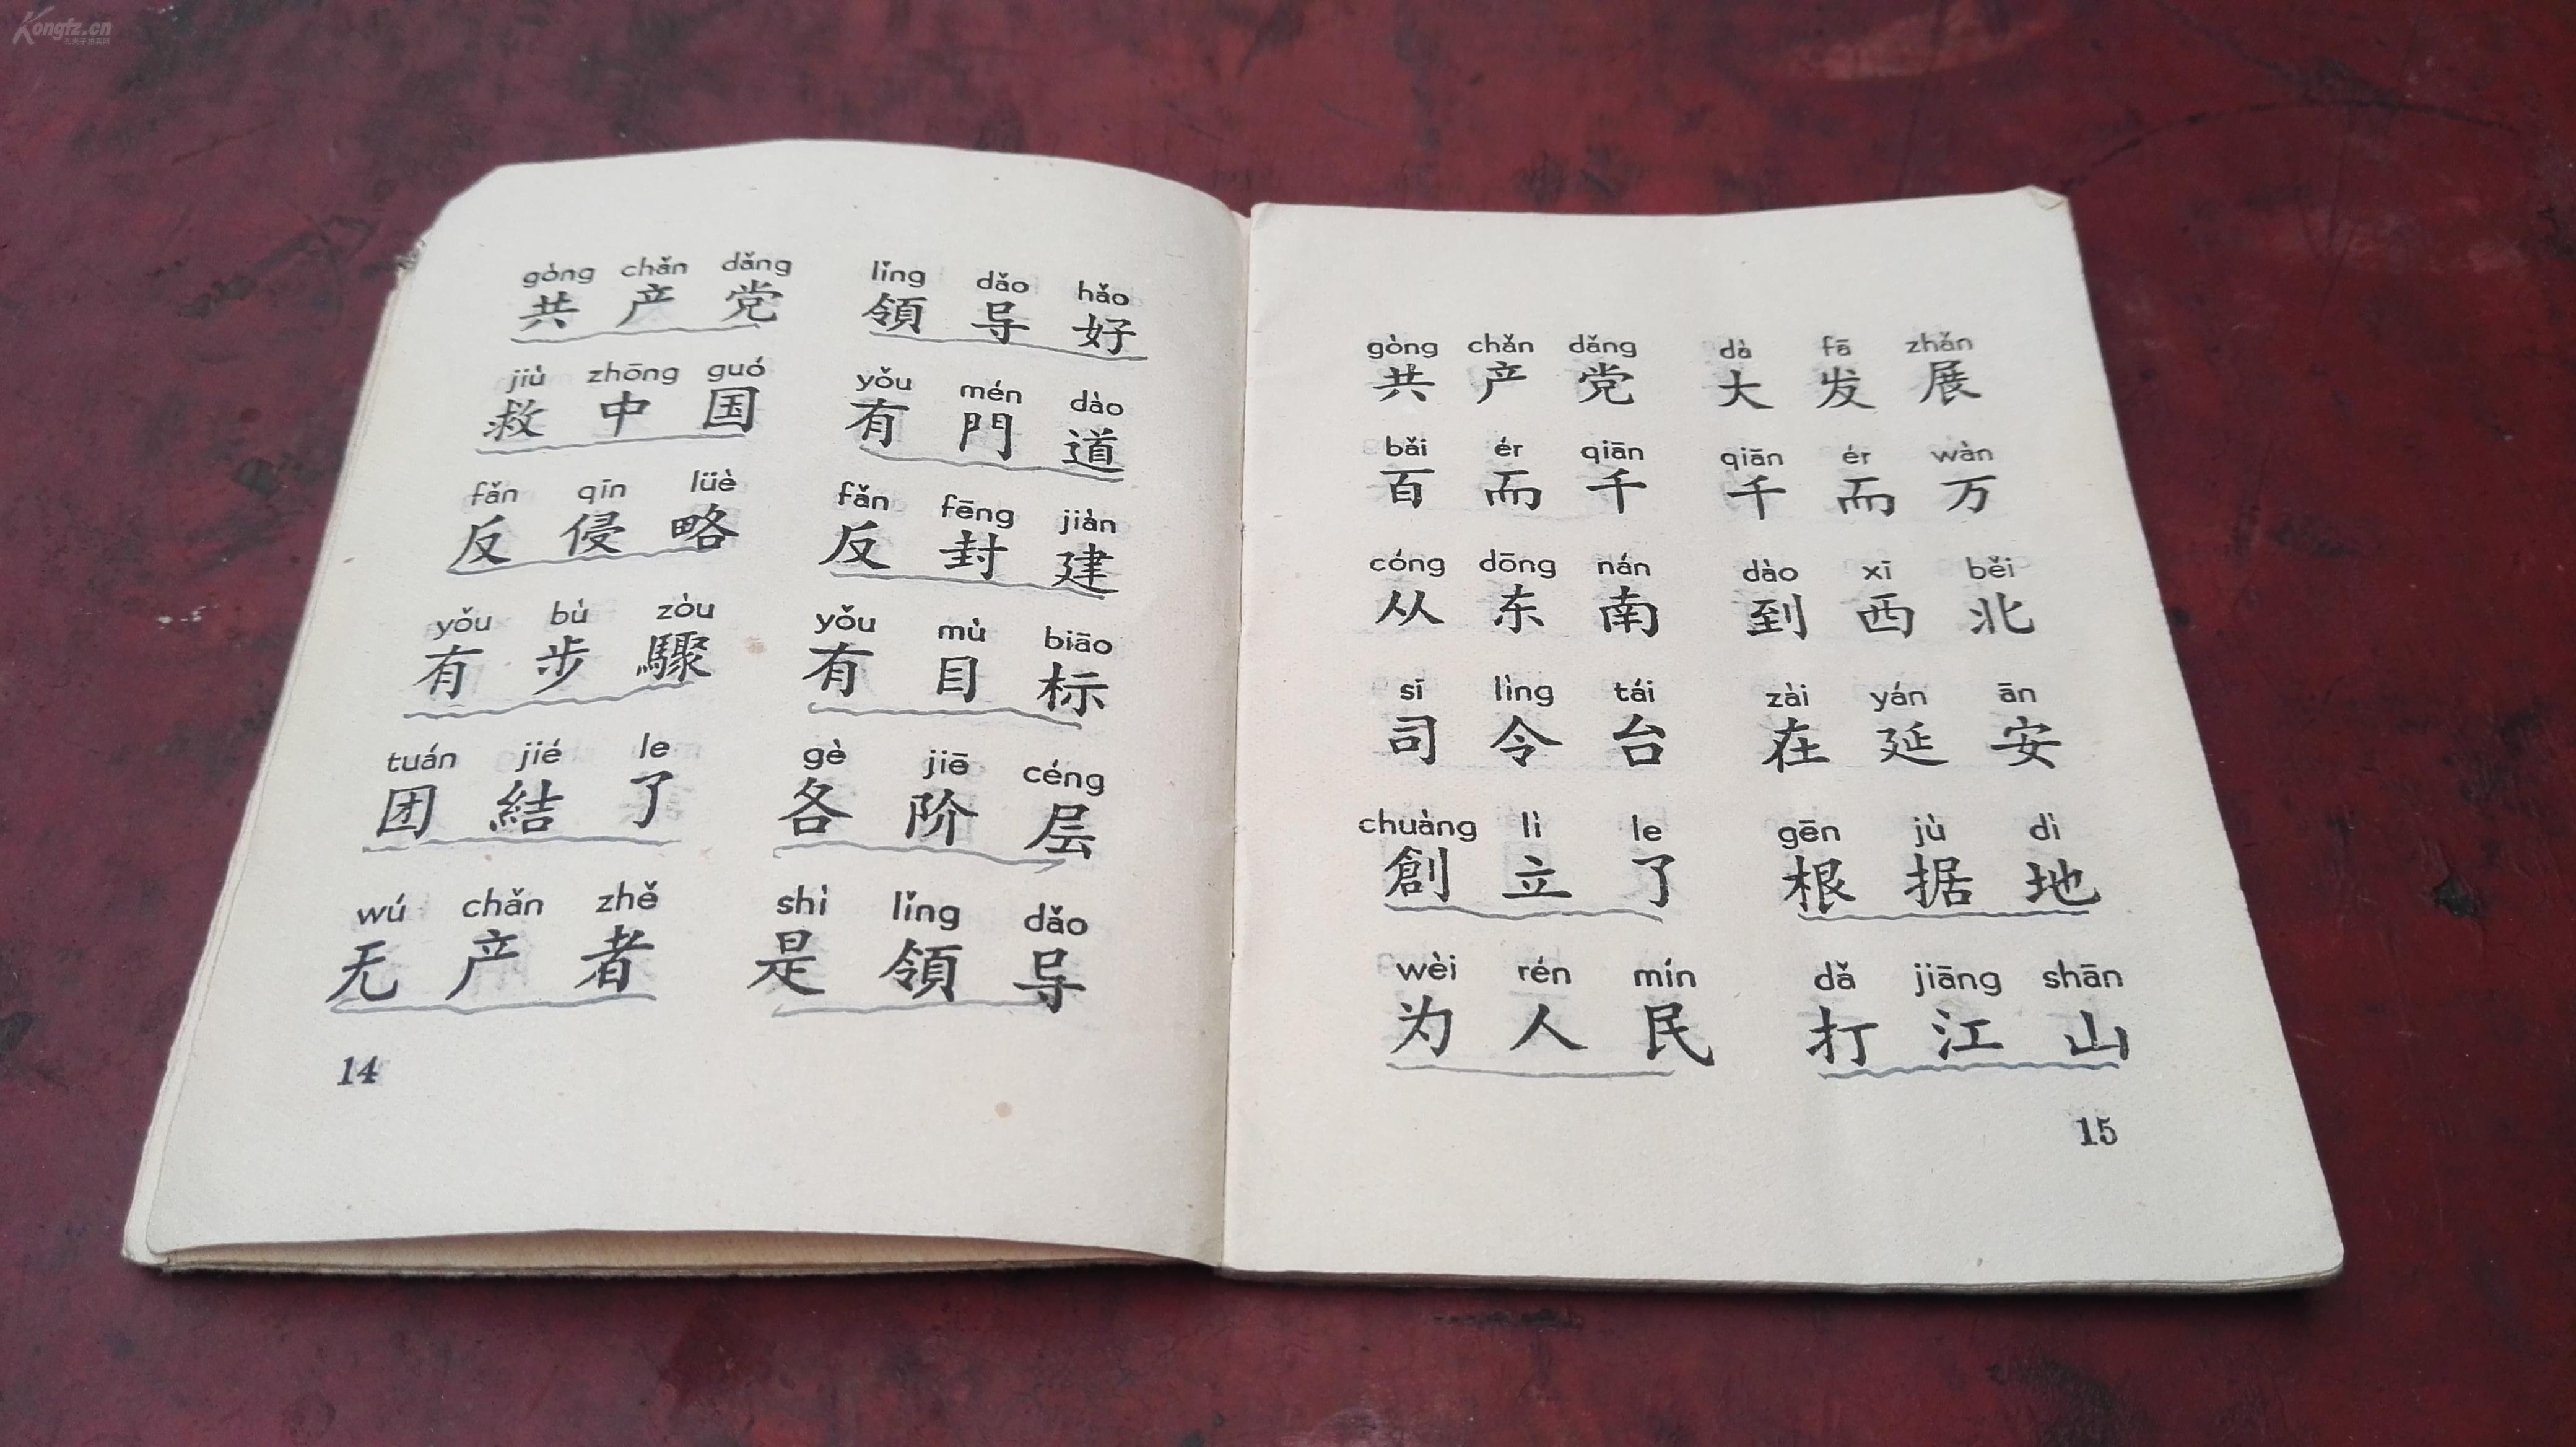 Kongfz.cn
gòng chǎn dǎng lǐng dǎo hǎo
共产党 領导好
jiù zhōng guó yǒu mén dào
救中国 有門道
fǎn qīn lüè fǎn fēng jiàn
反侵略 反封建
yǒu bù zòu yǒu mù biāo
有步驟 有目标
tuán jié le gè jiē céng
团結了 各阶层
wú chǎn zhě shì lǐng dǎo
无产者 是領导
14
gòng chǎn dǎng dà fā zhǎn
共产党 大发展
bǎi ér qiān qiān ér wàn
百而千 千而万
cóng dōng nán dào xī běi
从东南 到西北
sī lìng tái zài yán ān
司令台 在延安
chuàng lì le gēn jù dì
創立了 根据地
wèi rén mín dǎ jiāng shān
为人民 打江山
15